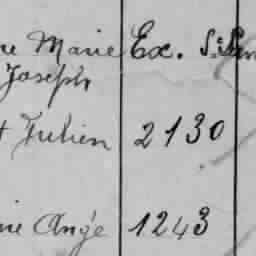 Marie Ex.
Joseph
Julien 2130
Ange 1243